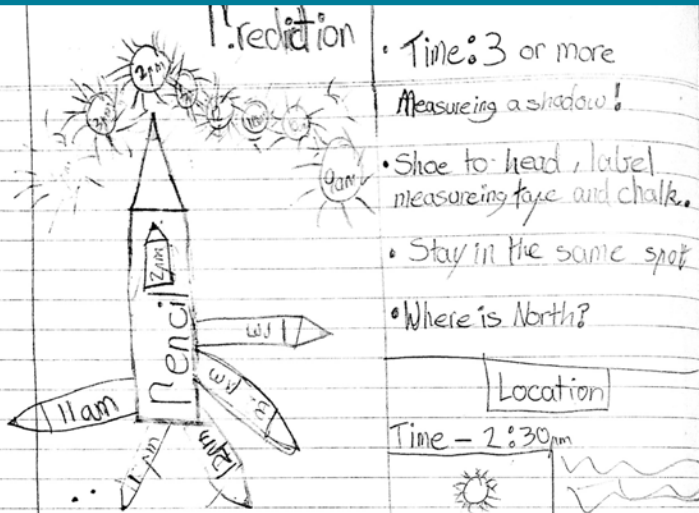 Prediction
2pm
9am
2pm
Pencil
11am
12pm
• Time: 3 or more
Measureing a shadow!
• Shoe to head, label
measureing tape and chalk.
• Stay in the same spot
• Where is North?
Location
Time - 2:30pm